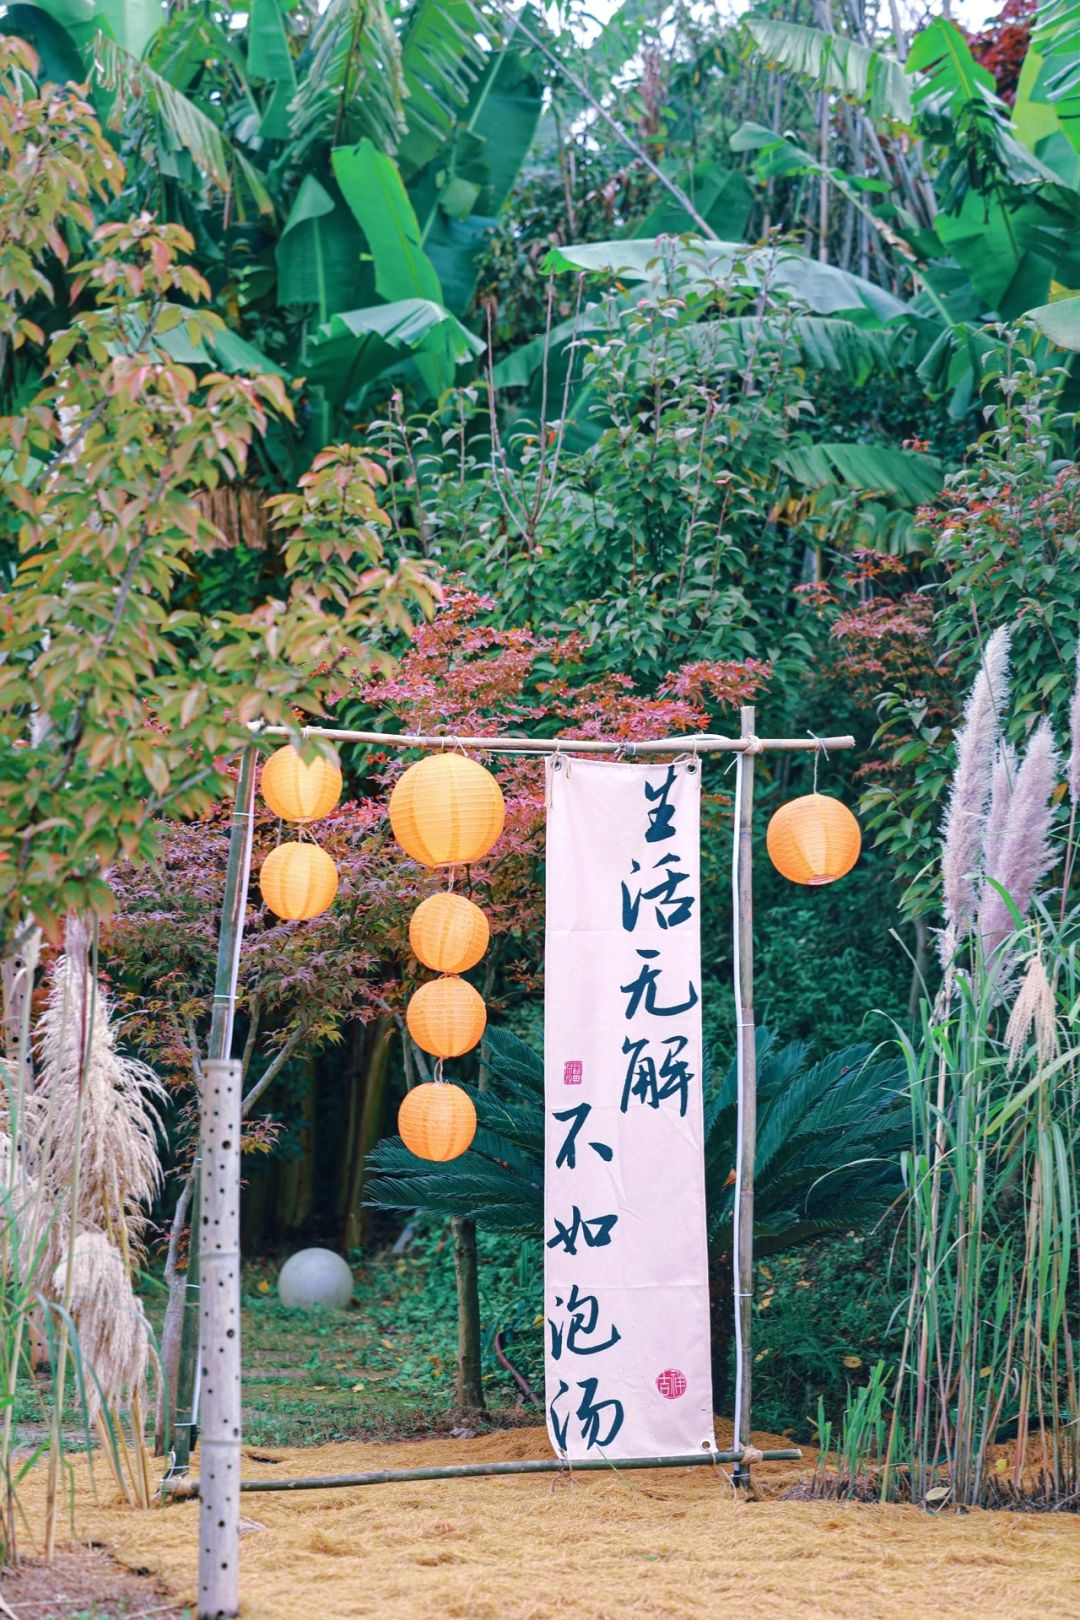 生活无解
不如泡汤
吉祥